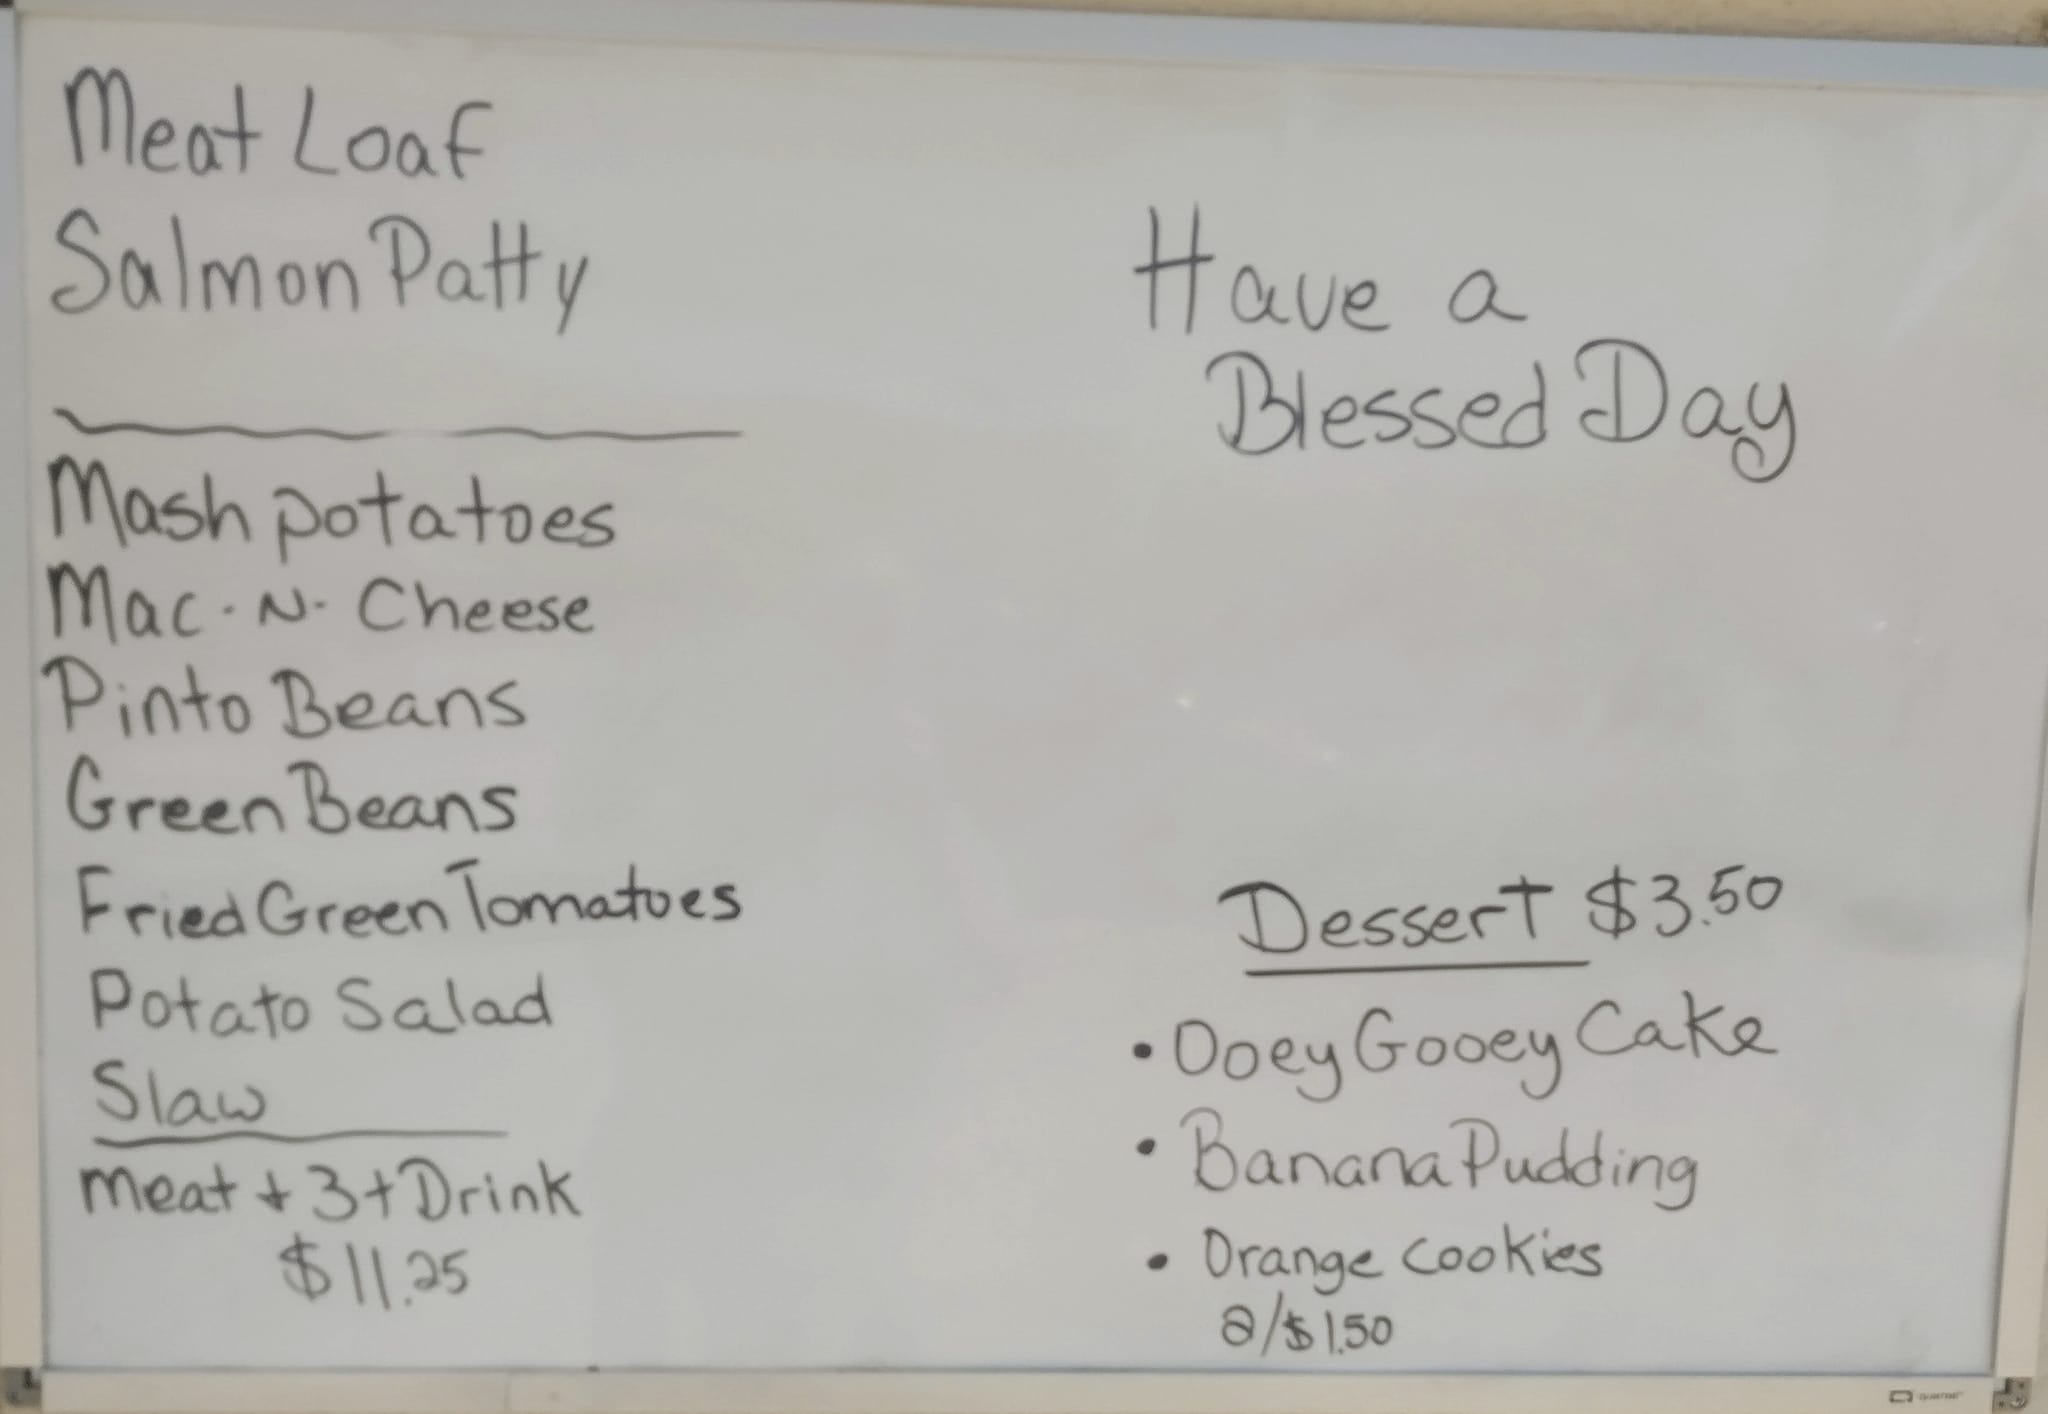 Meat Loaf
Salmon Patty
Mash potatoes
Mac-N-Cheese
Pinto Beans
Green Beans
Fried Green Tomatoes
Potato Salad
Slaw
Meat + 3 + Drink
$11.25
Have a
Blessed Day
Dessert $3.50
• Ooey Gooey Cake
• Banana Pudding
• Orange Cookies
2/$1.50